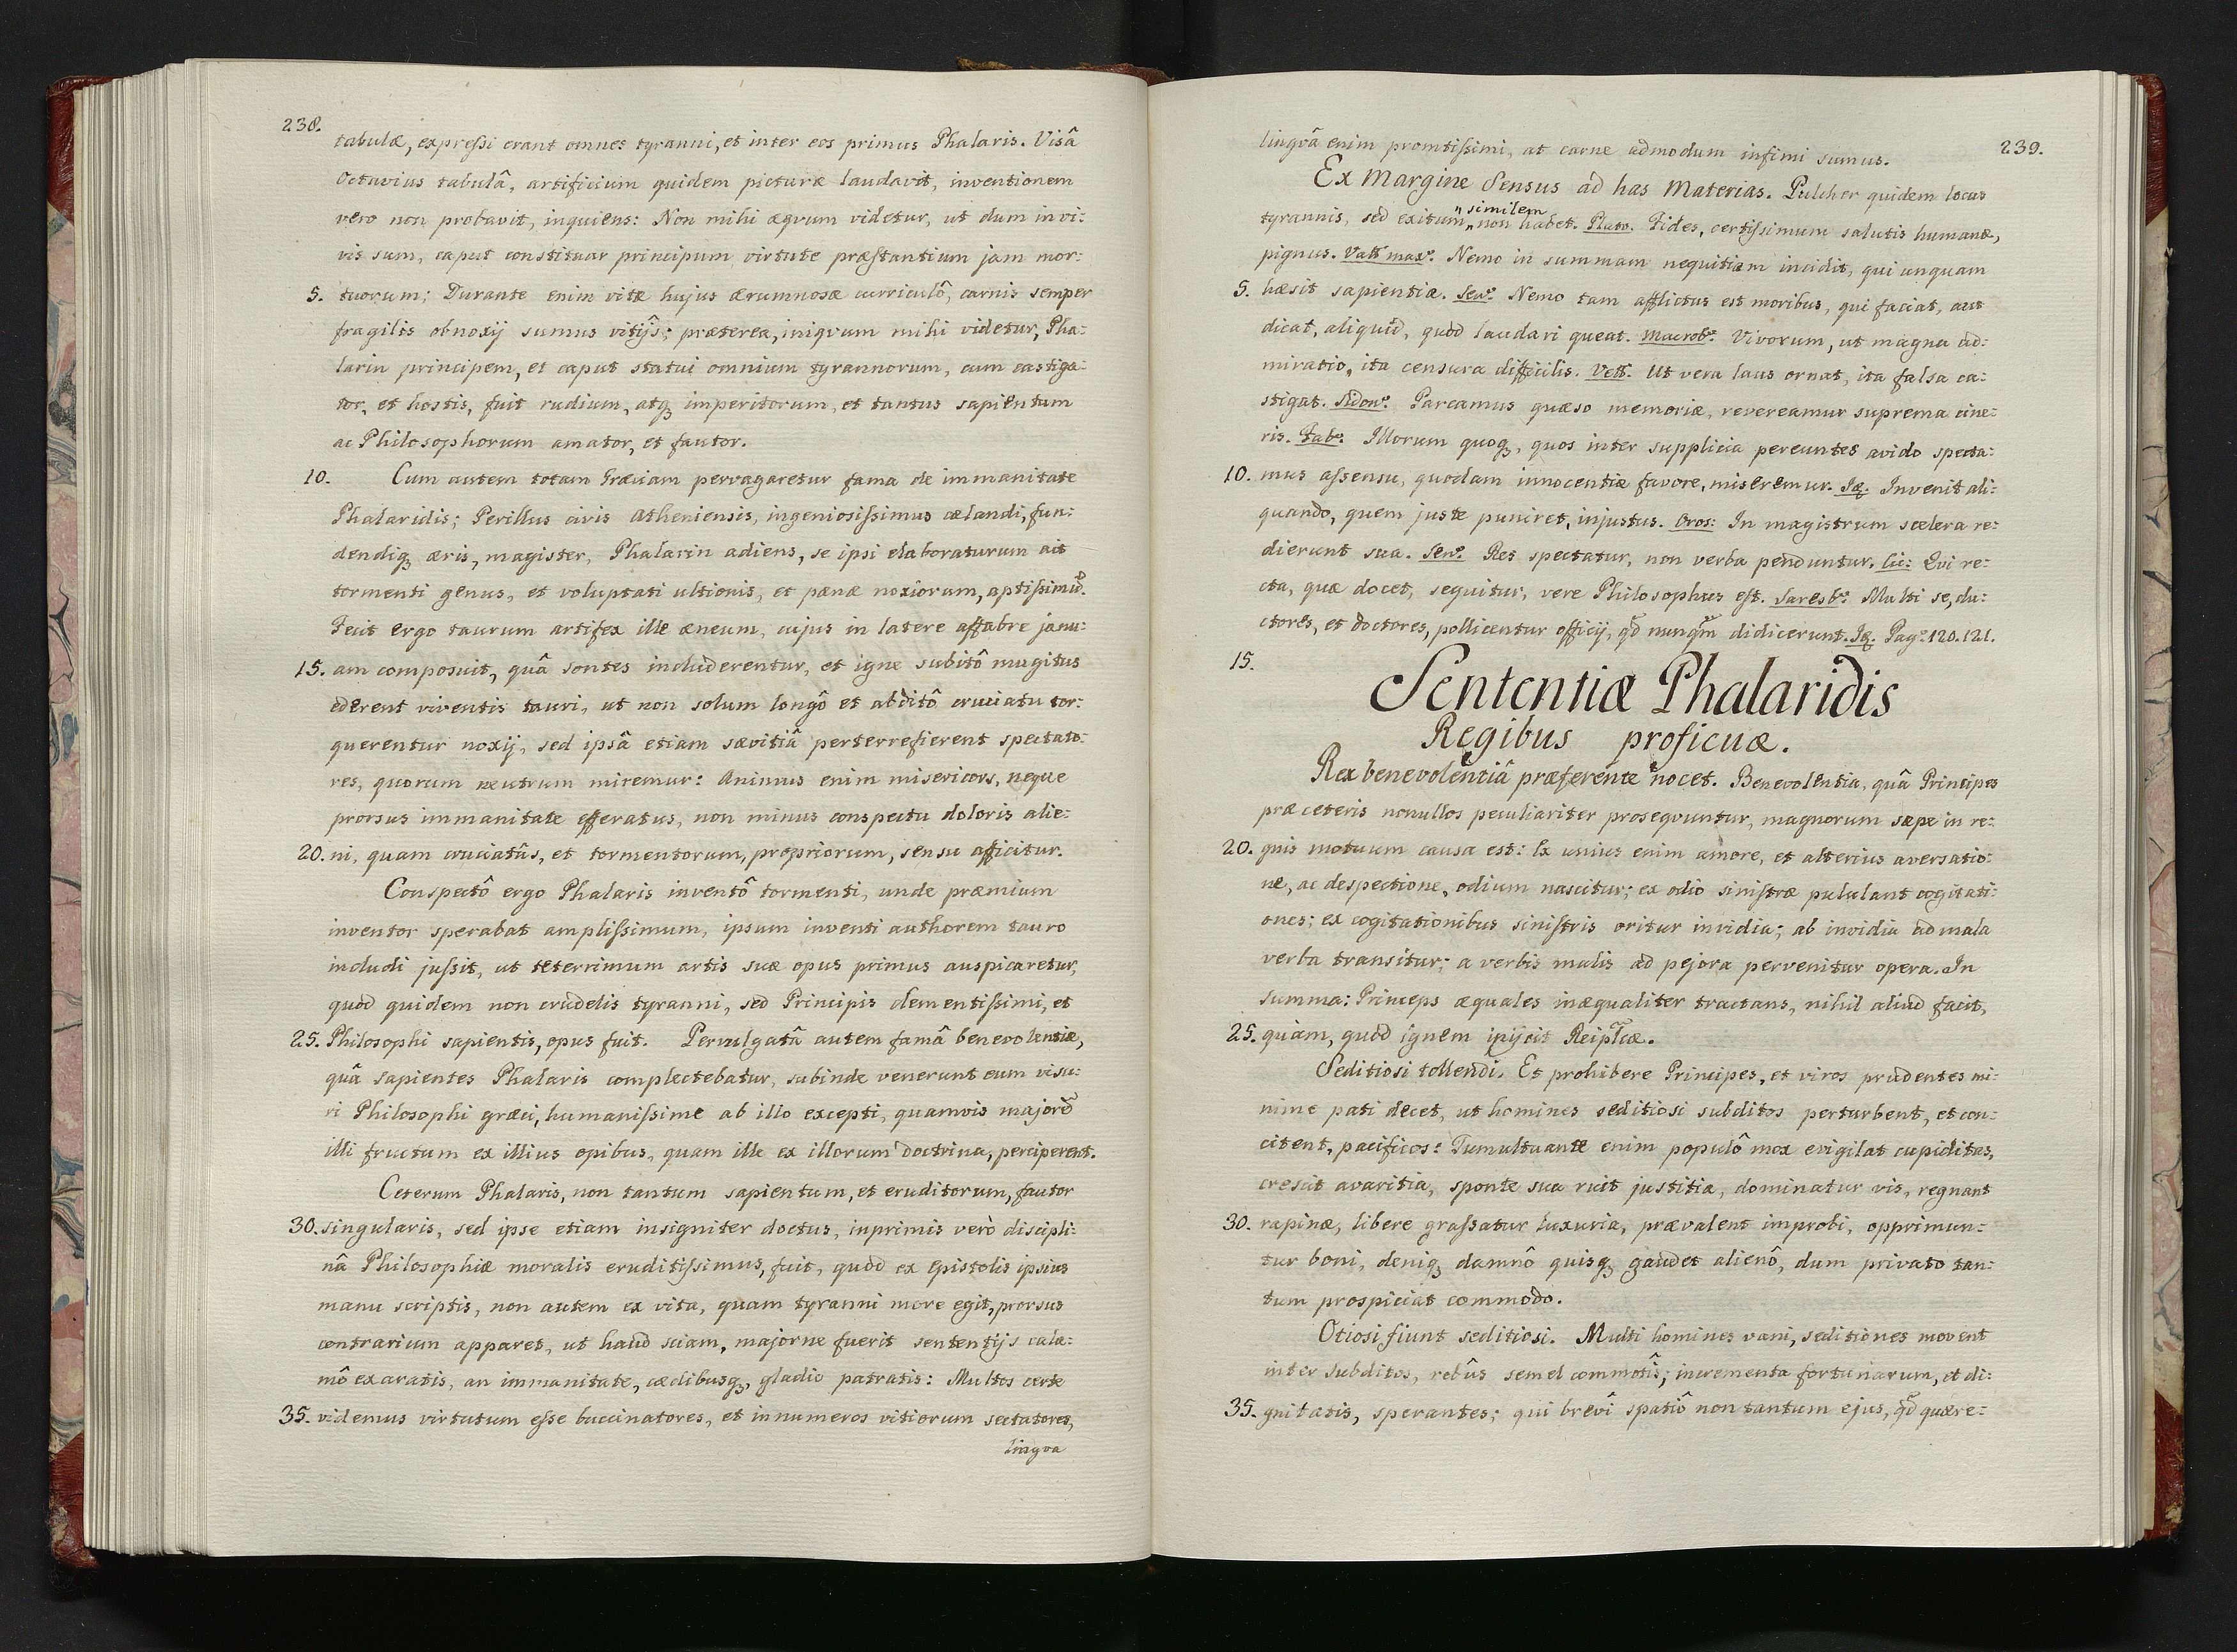 238.
tabulæ, expreſsi erant omnes tyranni, et inter eos primus Phalaris. Visâ
Octavius tabulâ, artificium quidem picturæ laudavit, inventionem
vero non probavit, inquiens: Non mihi æqvum videtur, ut dum in vi:
vis sum, caput constituar principum virtute præſtantium jam mor:
5. tuorum; Durante enim vitæ hujus ærumnosæ curriculô, carnis semper
fragilis obnoxij sumus vitijs; præterea, iniqvum mihi videtur, Pha:
larin principem, et caput statui omnium tyrannorum, cum castiga:
tor, et hostis, fuit rudium, atqꝫ imperitorum, et tantus sapientum
ac Philosophorum amator, et fautor.
10. Cum autem totam Græciam pervagaretur fama de immanitate
Phalaridis; Perillus civis Atheniensis, ingeniosiſsimus cælandi, fun:
dendiqꝫ æris, magister, Phalarin adiens, se ipsi elaboraturum ait
tormenti genus, et voluptati ultionis, et pænæ noxiorum, aptiſsimũ.
Fecit ergo taurum artifex ille æneum, cujus in latere affabre janu:
15. am composuit, quâ sontes includerentur, et igne subitô mugitus
ederent viventis tauri, ut non solum longô et abditô cruciatu tor:
querentur noxij, sed ipsâ etiam sævitiâ perterrefierent spectato:
res, quorum neutrum miremur: Animus enim misericors, neque
prorsus immanitate efferatus, non minus conspectu doloris alie:
20. ni, quam cruciatûs, et tormentorum, propriorum, sensu afficitur.
Conspectô ergo Phalaris inventô tormenti, unde præmium
inventor sperabat ampliſsimum, ipsum inventi authorem tauro
includi juſsit, ut teterrimum artis suæ opus primus auspicaretur,
quod quidem non crudelis tyranni, sed Principis clementiſsimi, et
25. Philosophi sapientis, opus fuit. Pervulgatâ autem famâ benevolentiæ,
quâ sapientes Phalaris complectebatur, subinde venerunt eum visu:
ri Philosophi græci, humaniſsime ab illo excepti, quamvis majorẽ
illi fructum ex illius opibus, quam ille ex illorum doctrina, perciperent.
Ceterum Phalaris, non tantum sapientum, et eruditorum, fautor
30. singularis, sed ipse etiam insigniter doctus, inprimis verò discipli:
nâ Philosophiæ moralis eruditiſsimus, fuit, quod ex Epistolis ipsius
manu scriptis, non autem ex vita, quam tyranni more egit, prorsus
contrarium apparet, ut haud sciam, majorne fuerit sententijs cala:
mô exaratis, an immanitate, cædibusqꝫ, gladio patratis: Multos certe
35. videmus virtutum eſse buccinatores, et innumeros vitiorum sectatores,
lingva
239.
lingvâ enim promtiſsimi, at carne admodum infimi sumus.
Ex Margine Sensus ad has Materias. Pulcher quidem locus
"similem
tyrannis, sed exitum „ non habet. Plato. Fides, certiſsimum salutis humanæ,
pignus. Vall max: Nemo in summam nequitiam incidit, qui unquam
5. hæsit sapientiæ. Sen: Nemo tam afflictus est moribus, qui faciat, aut
dicat, aliquid, quod laudari queat. Macrob: Vivorum, ut magna ad:
miratio, ita censura difficilis. Vell. Ut vera laus ornat, ita falsa ca:
stigat. Sidon: Parcamus quæso memoriæ, revereamur suprema cine:
ris. Fab: Illorum quoqꝫ, quos inter supplicia pereuntes avido specta:
10. mus aſsensu, quodam innocentiæ favore, miseremur. Iꝫ. Invenit ali:
quando, quem juste puniret, injustus. Oros: In magistrum scelera re:
dierunt sua. Sen: Res spectatur, non verba penduntur. Cic: Qvi re:
cta, quæ docet, sequitur, vere Philosophus eſt. Saresb: Multi se, du:
ctores, et doctores, pollicentur officij, qd̃ nunqm̃ didicerunt. Iꝫ. Pag: 120.121.
15.
Sententiæ Phalaridis
Regibus proficuæ.
Rex benevolentiâ præferente nocet. Benevolentia, quâ Principes
præ ceteris nonullos peculiariter proseqvuntur, magnorum sæpe in re:
20. gnis motuum causa est: Ex unius enim amore, et alterius aversatio:
ne, ac despectione, odium nascitur; ex odio siniſtræ pululant cogitati:
ones; ex cogitationibus siniſtris oritur invidia; ab invidia ad mala
verba transitur; a verbis malis ad pejora pervenitur opera. In
summa: Princeps æquales inæqualiter tractans, nihil aliud facit,
25. quam, quod ignem injicit Reiplcæ.
Seditiosi tollendi. Et prohibere Principes, et viros prudentes mi:
nime pati decet, ut homines seditiosi subditos perturbent, et con:
citent, pacificos: Tumultuante enim populô mox evigilat cupiditas,
crescit avaritia, sponte sua ruit justitia, dominatur vis, regnant
30. rapinæ, libere graſsatur luxuria, prævalent improbi, opprimun:
tur boni, deniqꝫ damnô quisqꝫ gaudet alienô, dum privato tan:
tum prospiciat commodo.
Otiosi fiunt seditiosi. Multi homines vani, seditiones movent
inter subditos, rebûs semel commotîs; incrementa fortunarum, et di:
35. gnitatis, sperantes; qui brevî spatiô non tantum ejus, qd̃ quære: